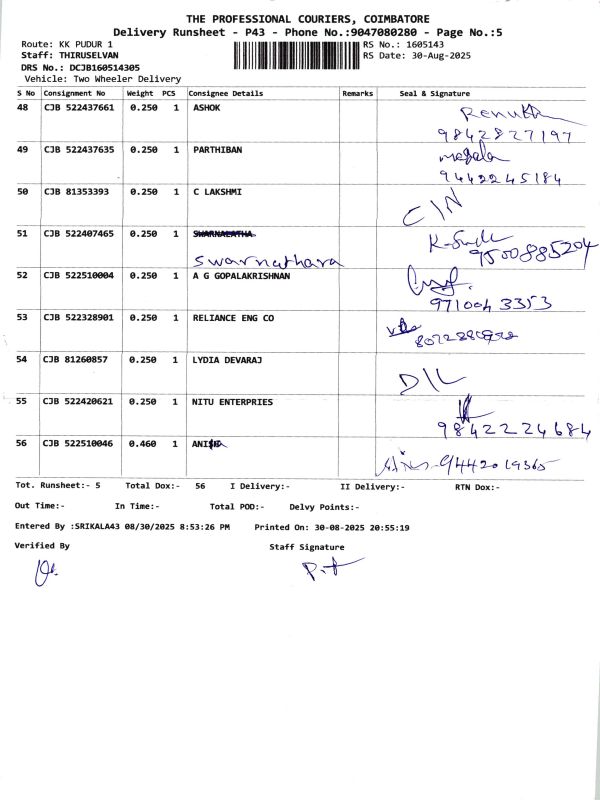 THE PROFESSIONAL COURIERS, COIMBATORE
Delivery Runsheet - P43 - Phone No.:9047080280 - Page No.:5
Route: KK PUDUR 1 RS No.: 1605143
Staff: THIRUSELVAN RS Date: 30-Aug-2025
DRS No.: DCJB160514305
Vehicle: Two Wheeler Delivery
S No Consignment No Weight PCS Consignee Details Remarks Seal & Signature
48 CJB 522437661 0.250 1 ASHOK Renuka
9842827197
49 CJB 522437635 0.250 1 PARTHIBAN megala
9442245184
50 CJB 81353393 0.250 1 C LAKSHMI C/N
51 CJB 522407465 0.250 1 SWARNALATHA
swarnathara 9500885204
52 CJB 522510004 0.250 1 A G GOPALAKRISHNAN
9710043353
53 CJB 522328901 0.250 1 RELIANCE ENG CO
54 CJB 81260857 0.250 1 LYDIA DEVARAJ D/L
55 CJB 522420621 0.250 1 NITU ENTERPRIES
9842224684
56 CJB 522510046 0.460 1 9442019365
Tot. Runsheet:- 5 Total Dox:- 56 I Delivery:- II Delivery:- RTN Dox:-
Out Time:- In Time:- Total POD:- Delvy Points:-
Entered By :SRIKALA43 08/30/2025 8:53:26 PM Printed On: 30-08-2025 20:55:19
Verified By Staff Signature